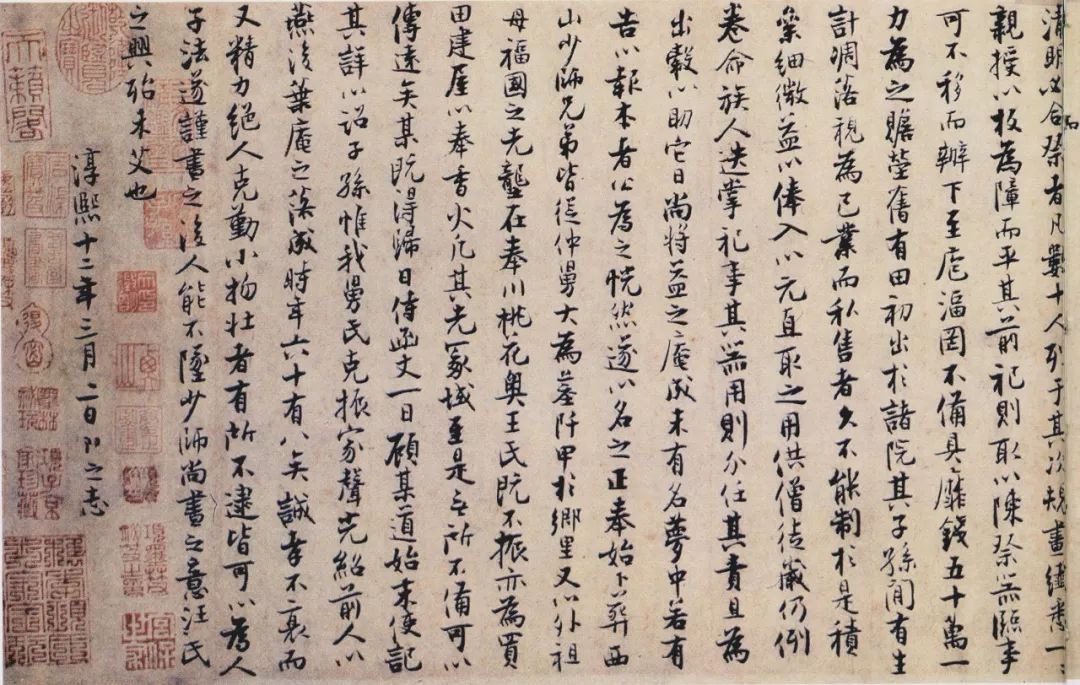 清明必合祭者凡數十人列于其次規畫纖悉一一
親授以板為障而平其前祀則取以陳祭器臨事
可不移而辦下至庖湢罔不備具靡錢五十萬一
力為之贍塋舊有田初出於諸院其子孫間有生
計凋落視為己業而私售者久不能制於是積
絫細微益以俸入以元直取之用供僧徒歲仍例
卷命族人迭掌祀事其器用則分任其責且為
出穀以助它日尚將益之庵成未有名夢中若有
告以報本者公為之怳然遂以名之正奉始卜葬西
山少師兄弟皆從仲舅大為墓阡甲於鄉里又以外祖
母福國之先壟在奉川桃花奧王氏既不振亦為買
田建屋以奉香火凡其先冢域至是立所不備可以
傳遠矣某既得歸日侍函丈一日顧某道始末使記
其詳以詔子孫惟我舅氏克振家聲光紹前人以
燕後葉庵之落成時年六十有八矣誠孝不衰而
又精力絕人克勤小物壯者有所不逮皆可以為人
子法遂謹書之後人能不墜少師尚書之意汪氏
之興殆未艾也
淳熙十二年三月二日
之志
天籟閣